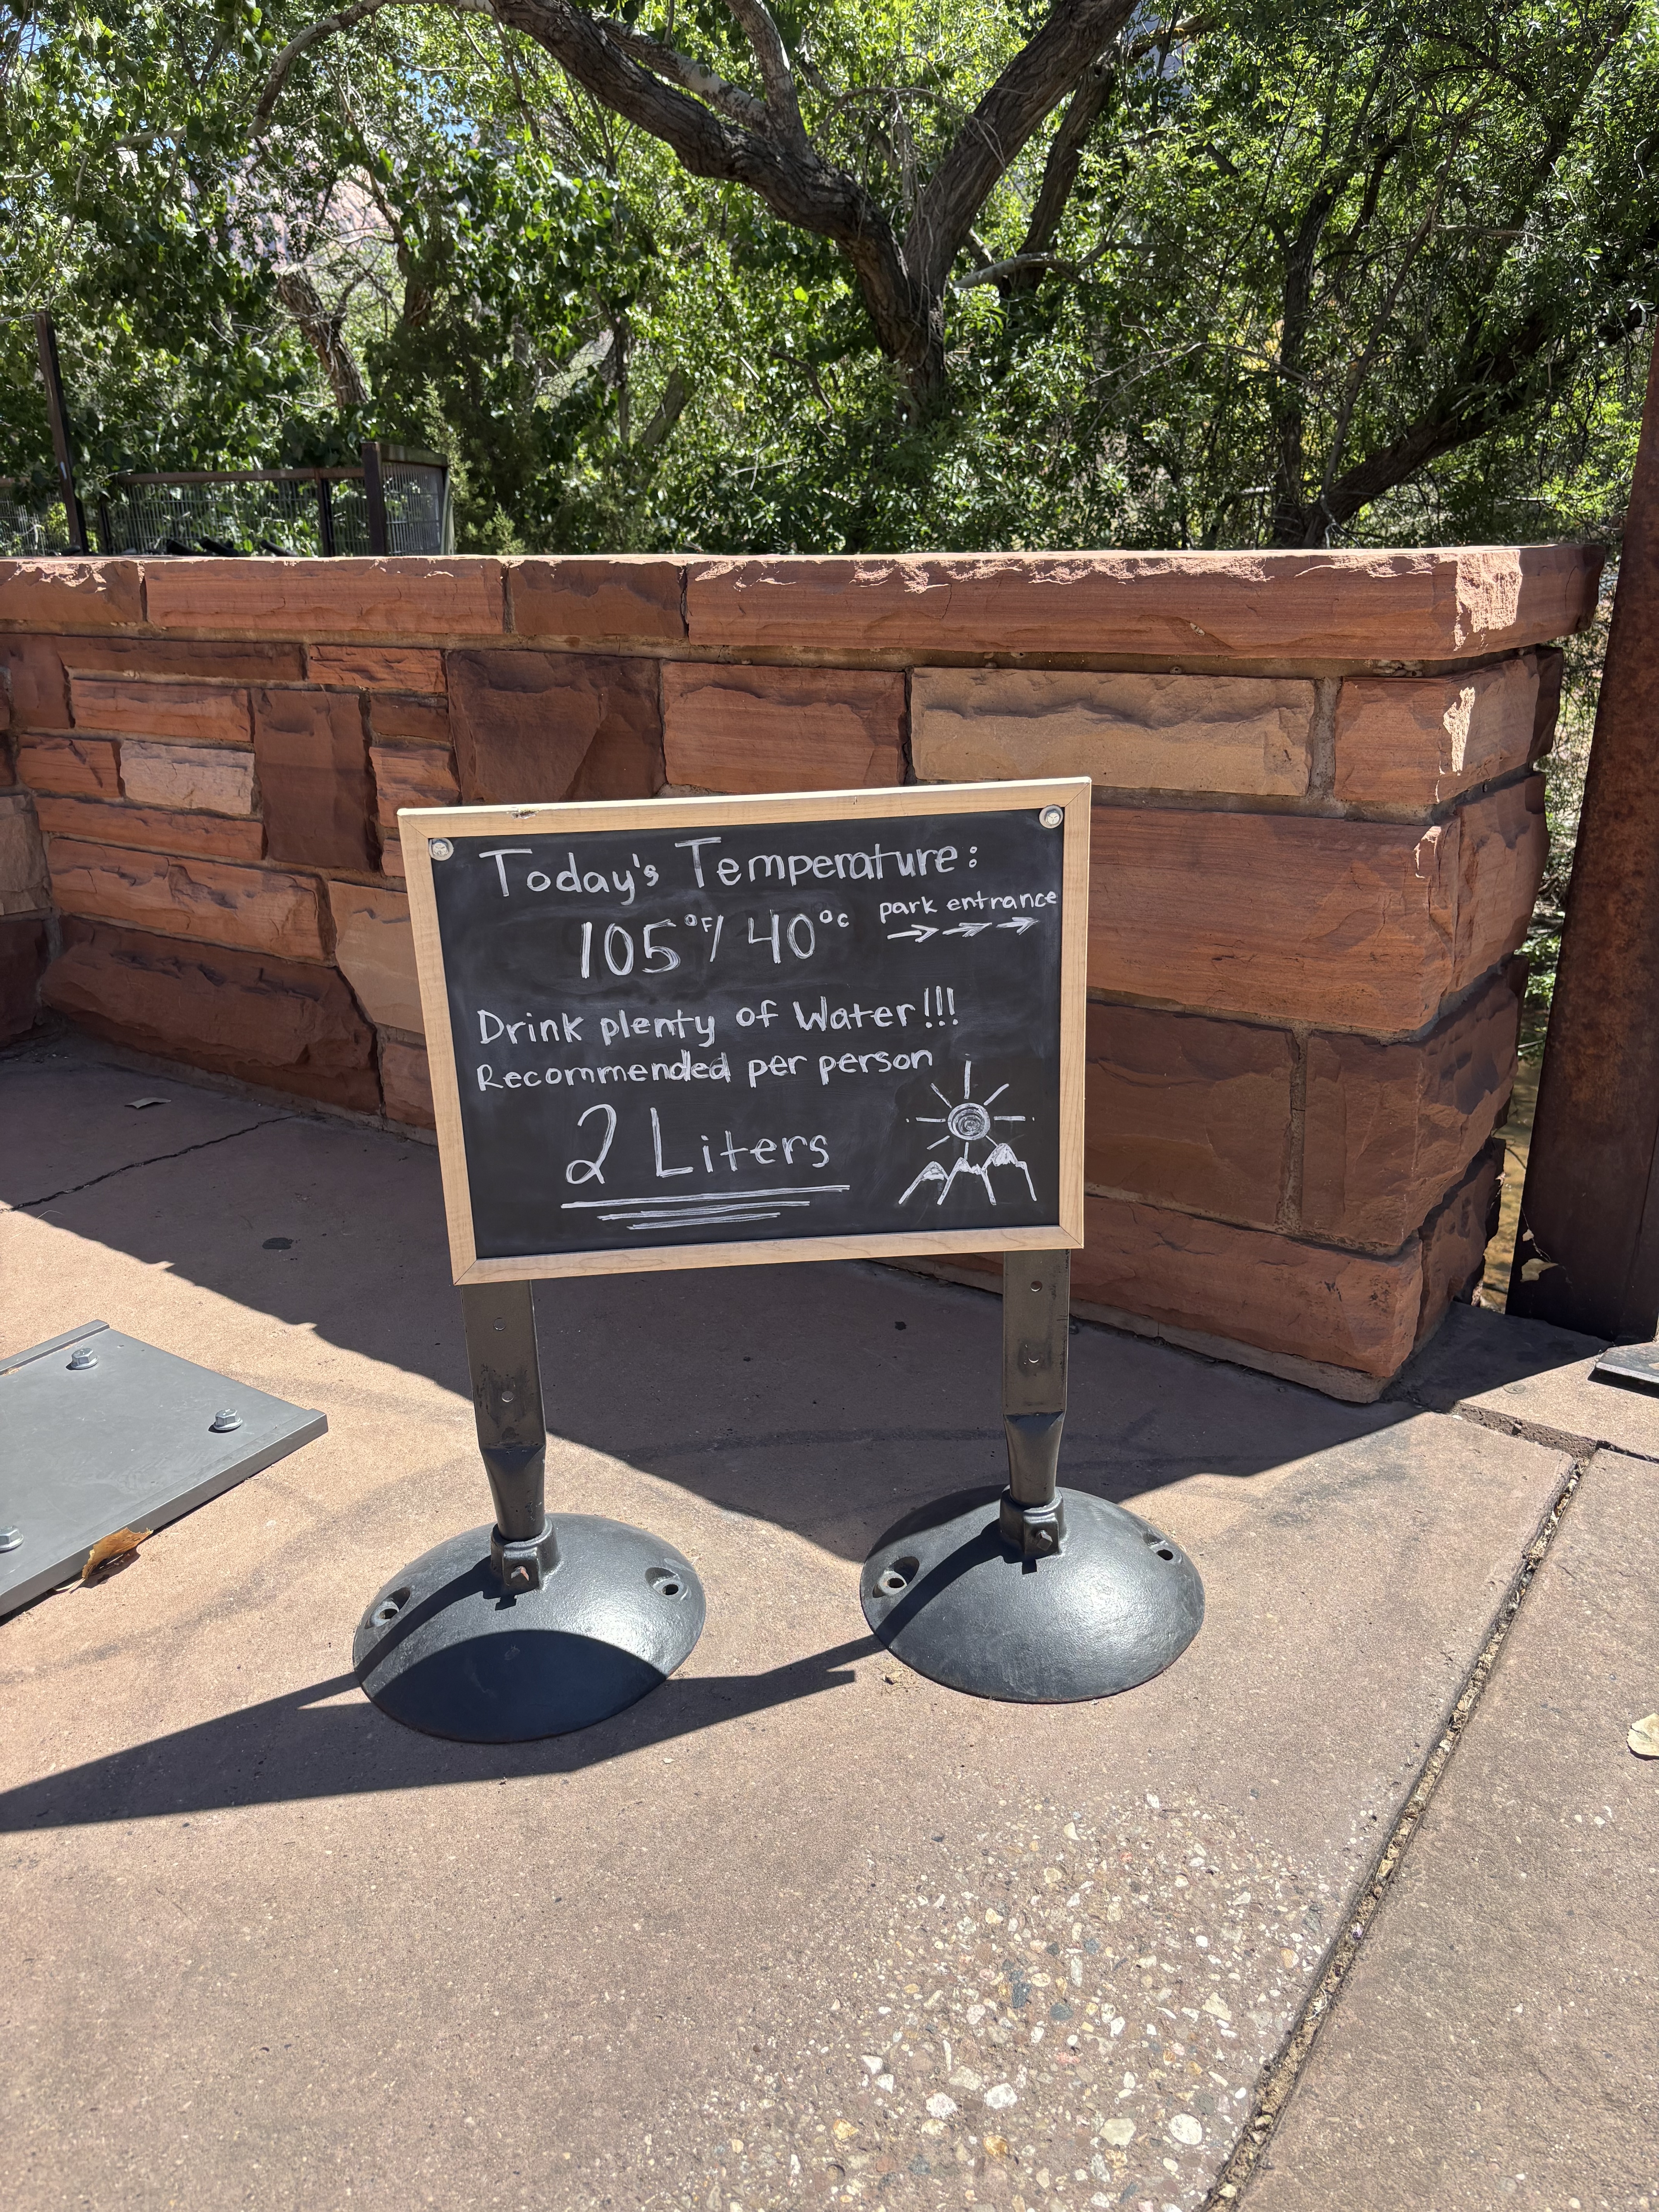 Today's Temperature:
105°F/ 40°C
park entrance
Drink plenty of Water!!!
Recommended per person
2 Liters